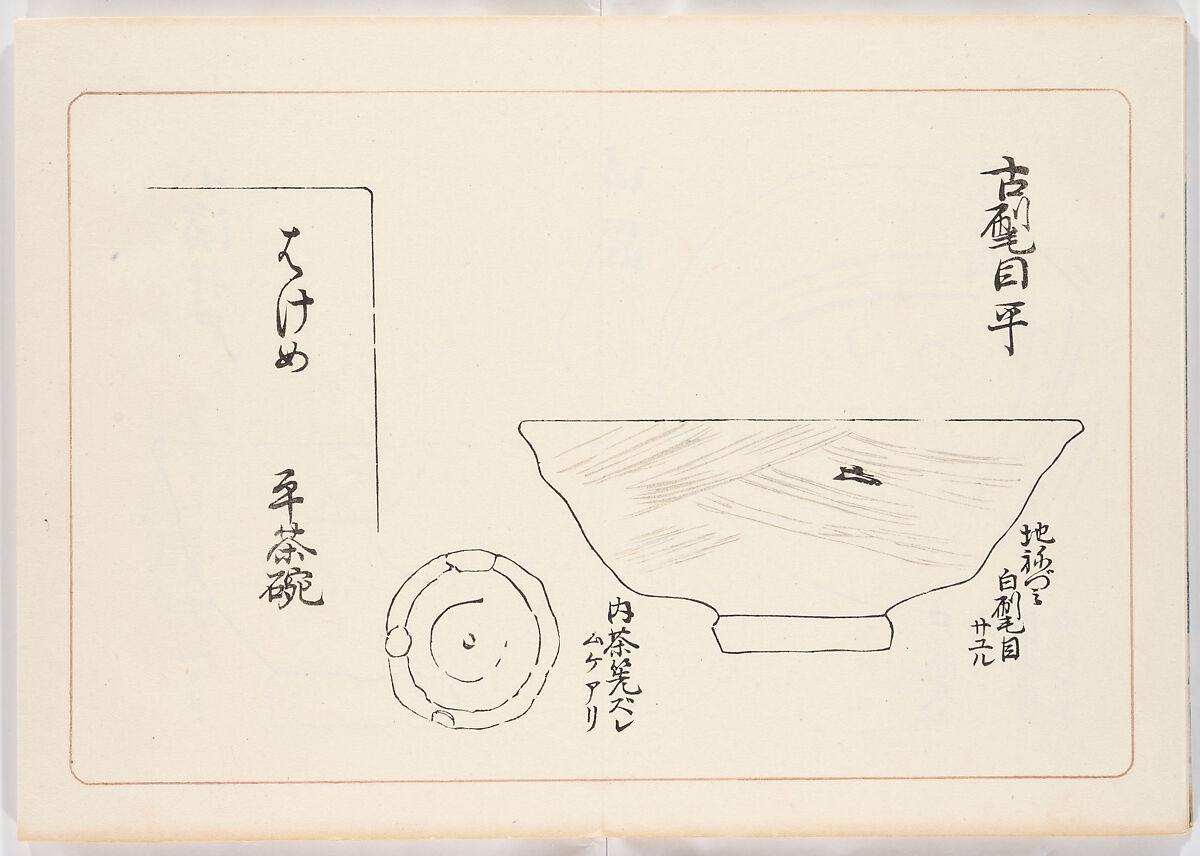 古刷毛目平
地ねづミ
白刷毛目
サユル
内茶筅ズレ
ムケアリ
はけめ 平茶碗